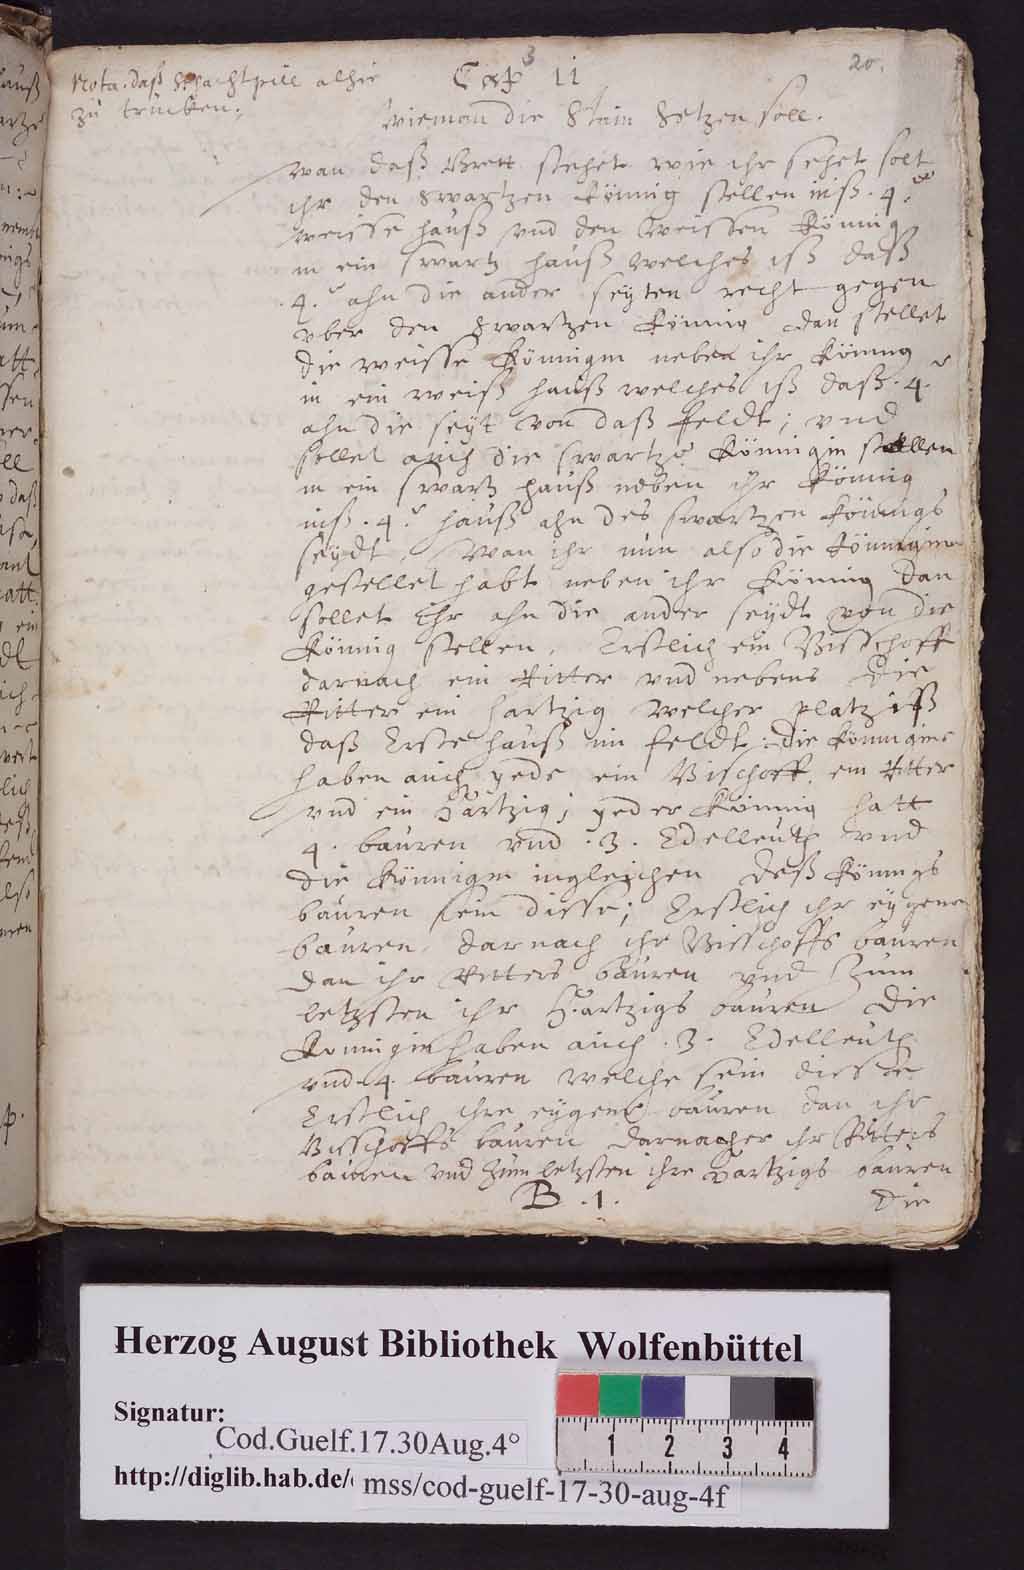 20.
Nota. daß Schachtspill alhie
zu trucken.
Cap. ii
wie man die Stain Setzen soll.
wan daß Brett stehet wie ihr sehet solt
ihr den Swartzen Könnig stellen inß .4.
weisse hauß vnd den Weissen Könnig
in ein swartz hauß welches iß daß
4. ahn die ander seyten recht gegen
vber den Swartzen Könnig dan stellet
die weisse Könnigin neben ihr Könnig
in ein weiß hauß welches iß daß .4.
ahn die seyt von daß feldt; vnd
sollet auch die swartze Könnigin stellen
in ein swartz hauß neben ihr Könnig
inß .4. hauß ahn des swartzen Könnigs
seydt. Wan ihr nun also die Könnigine
gestellet habt neben ihr Könnig dan
sollet Ihr ahn die ander seydt von die
Könnig stellen. Erstlich ein Bisschoff
darnach ein Ritter vnd nebens die
Ritter ein hartzig welcher platz iß
daß Erste hauß im feldt: die Könnigine
haben auch yede ein Bischoff, ein Ritter
vnd ein Hartzig; yeder Könnig hatt
4. bauren vnd .3. Edelleuth vnd
die Könnigin ingleichen deß Könnigs
bauren sein disse; Erstlich ihr eygene
bauren. darnach ihr Bisschoffs bauren
dan ihr Ritters bauren vnd Zum
letzsten ihr Hartzigs bauren die
Konnigin haben auch .3. Edelleuth
vnd .4. bauren welche sein diesse
Erstlich ihre eygene bauren dan ihr
Bisschoffs bauren darnacher ihr Ritters
bauren vnd Zum letzsten ihre Hartzigs bauren
B .1.
die
Herzog August Bibliothek Wolfenbüttel
Signatur:
Cod.Guelf.17.30Aug.4°
http://diglib.hab.de/
mss/cod-guelf-17-30-aug-4f
1 2 3 4